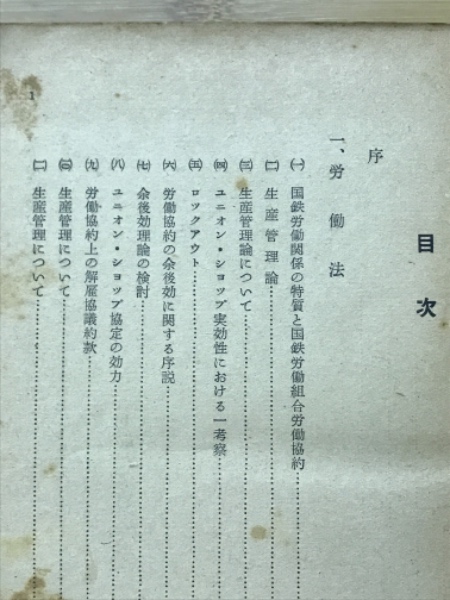 目次
序
一、労働法
㈠ 国鉄労働関係の特質と国鉄労働組合労働協約
㈡ 生産管理論
㈢ 生産管理論について
㈣ ユニオン・ショップ実効性における一考察
㈤ ロックアウト
㈥ 労働協約の余後効に関する序説
㈦ 余後効理論の検討
㈧ ユニオン・ショップ協定の効力
㈨ 労働協約上の解雇協議約款
生産管理について
生産管理について
1